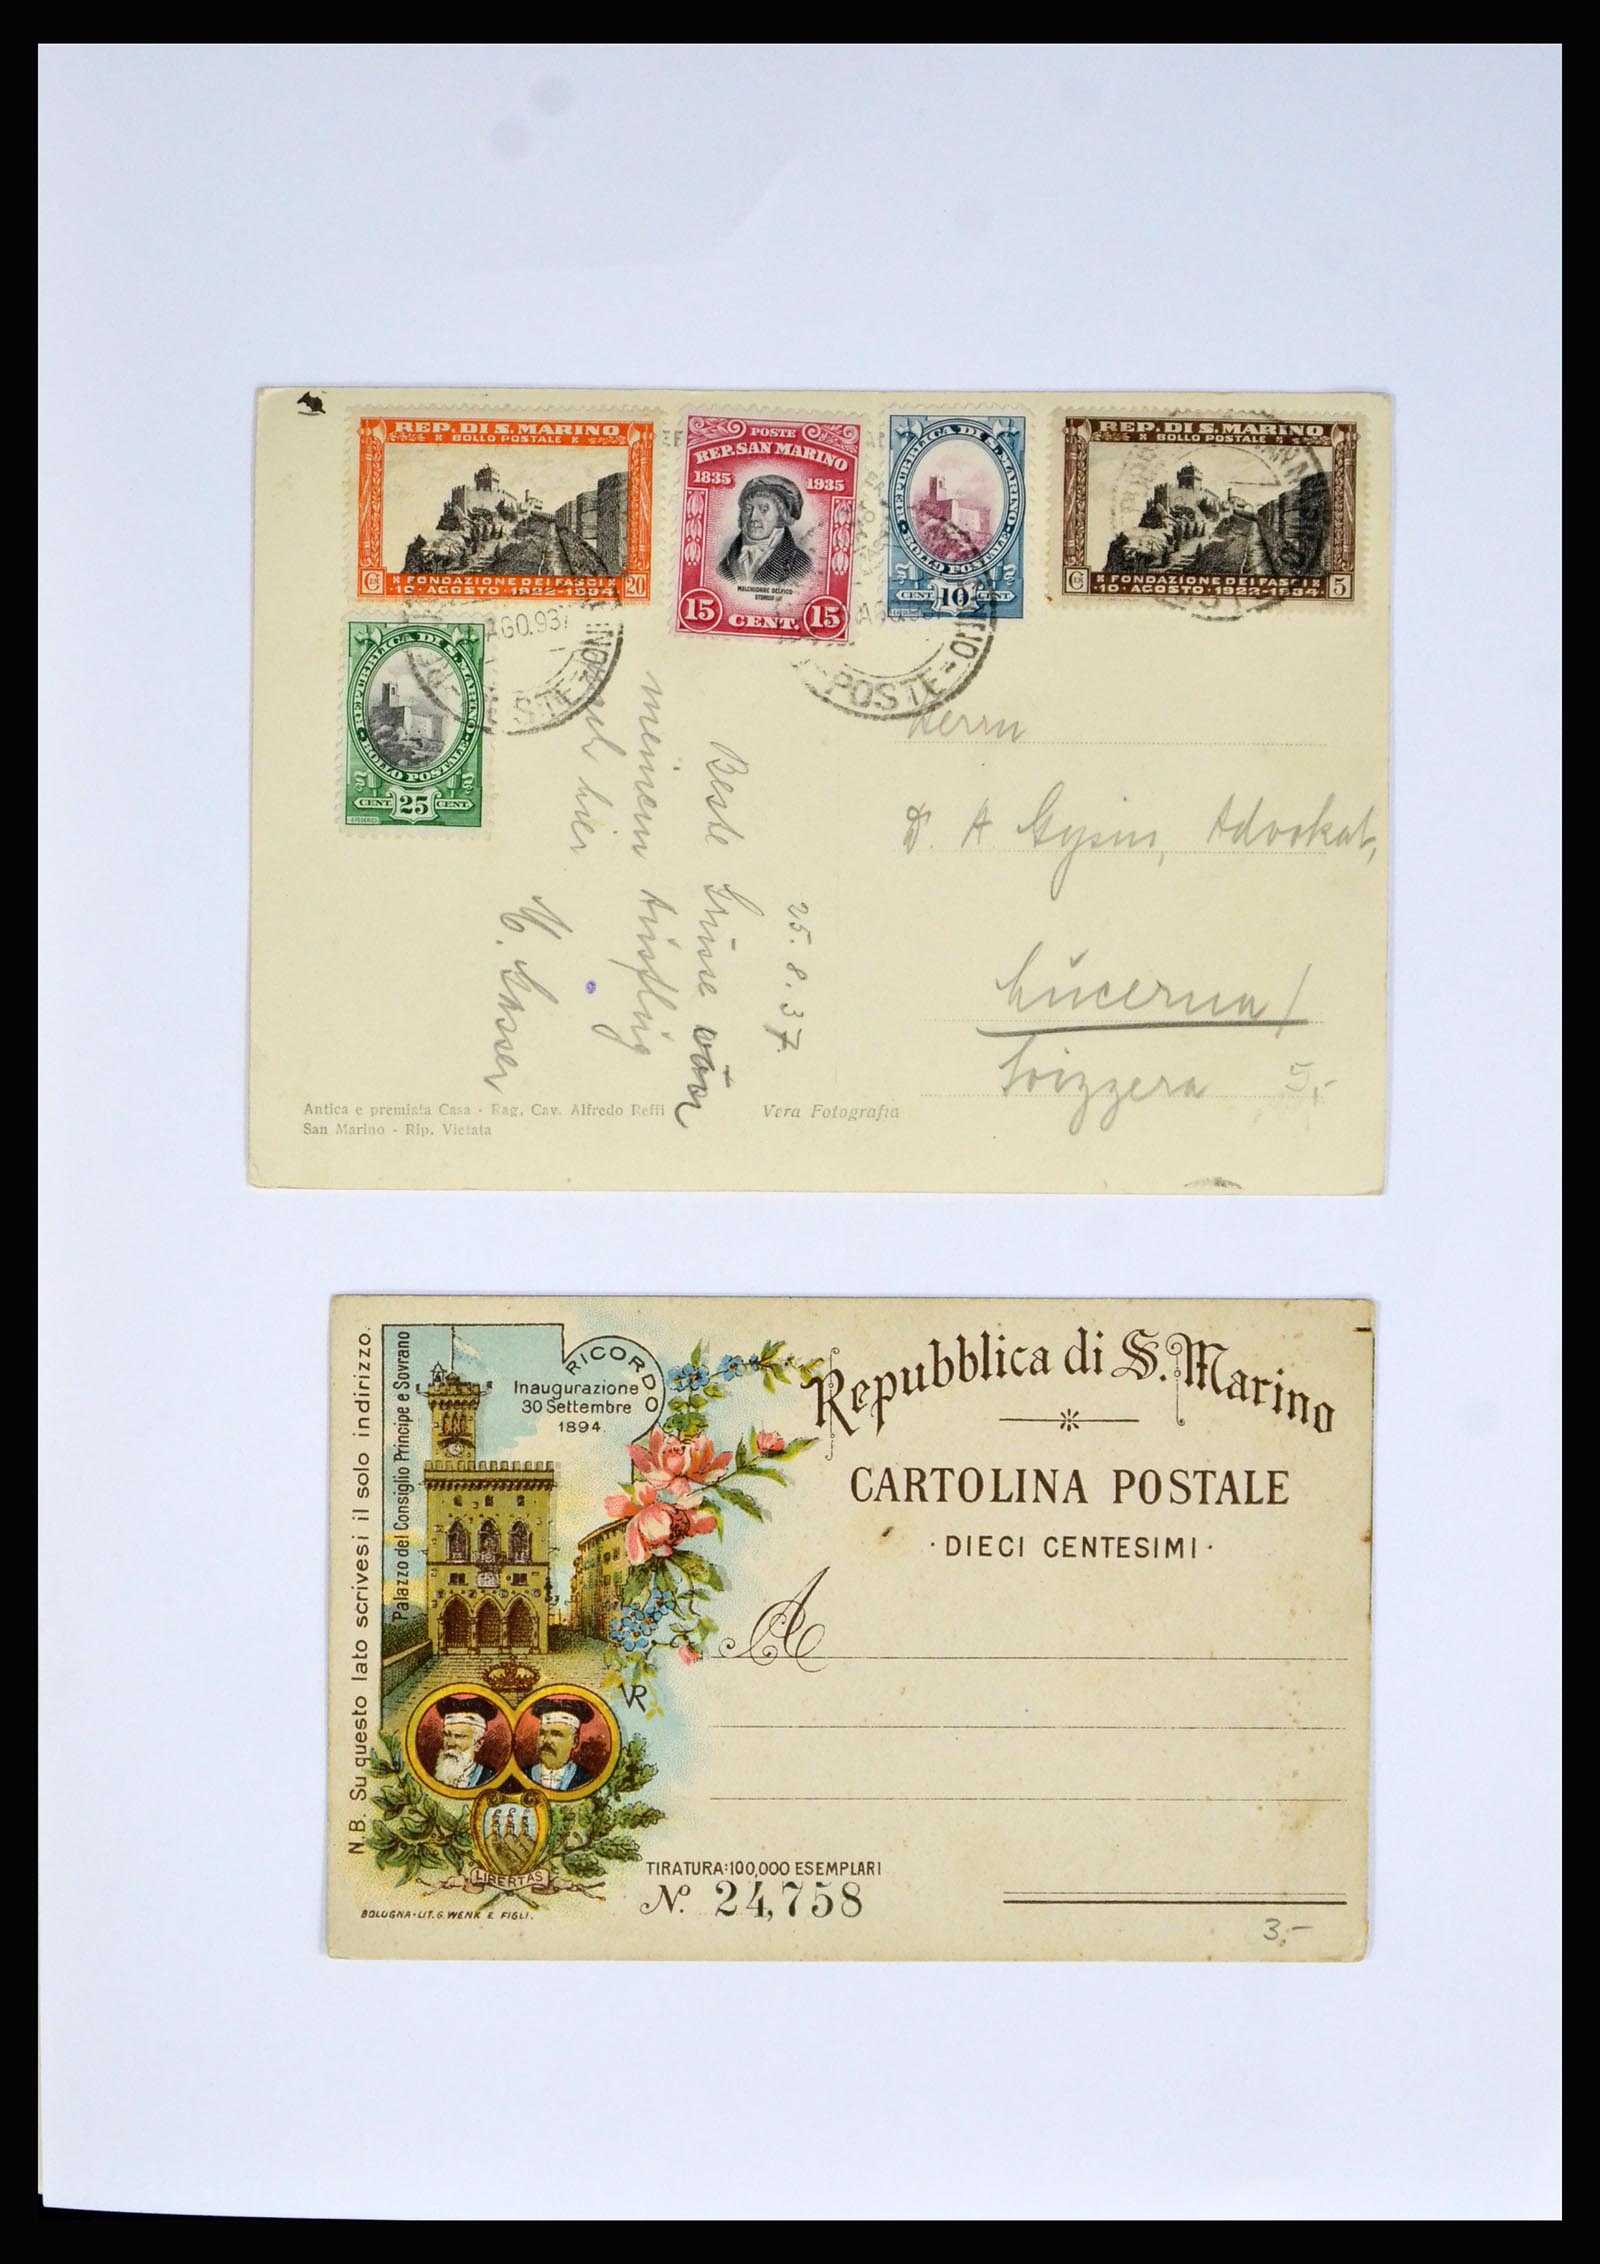 REP. DI S. MARINO
BOLLO POSTALE
FONDAZIONE DEI FASCI
10 AGOSTO 1922-1934
Cᴱᴺ 20
POSTE
REP. SAN MARINO
1835 1935
MELCHIORRE DELFICO
STORICO
15 CENT. 15
REPUBBLICA DI S. MARINO
BOLLO POSTALE
CENT 10 CENT
REP. DI S. MARINO
BOLLO POSTALE
FONDAZIONE DEI FASCI
10 AGOSTO 1922-1934
Cᴱᴺ 5
REPUBBLICA DI S. MARINO
BOLLO POSTALE
CENT 25 CENT
AGO.937
POSTE
25. 8. 37.
Beste Grüsse von
meinem Ausflug
hier
Herrn
Dr. A Gysin, Advokat,
Lucerna /
Svizzera
5,-
Antica e premiata Casa - Rag. Cav. Alfredo Reffi
San Marino - Rip. Vietata
Vera Fotografia
N.B. Su questo lato scrivesi il solo indirizzo.
Palazzo del Consiglio Principe e Sovrano
RICORDO
Inaugurazione
30 Settembre
1894.
Repubblica di S. Marino
CARTOLINA POSTALE
·DIECI CENTESIMI·
A
VR
LIBERTAS
TIRATURA: 100,000 ESEMPLARI
N.º 24,758
BOLOGNA·LIT. G. WENK E FIGLI.
3,-